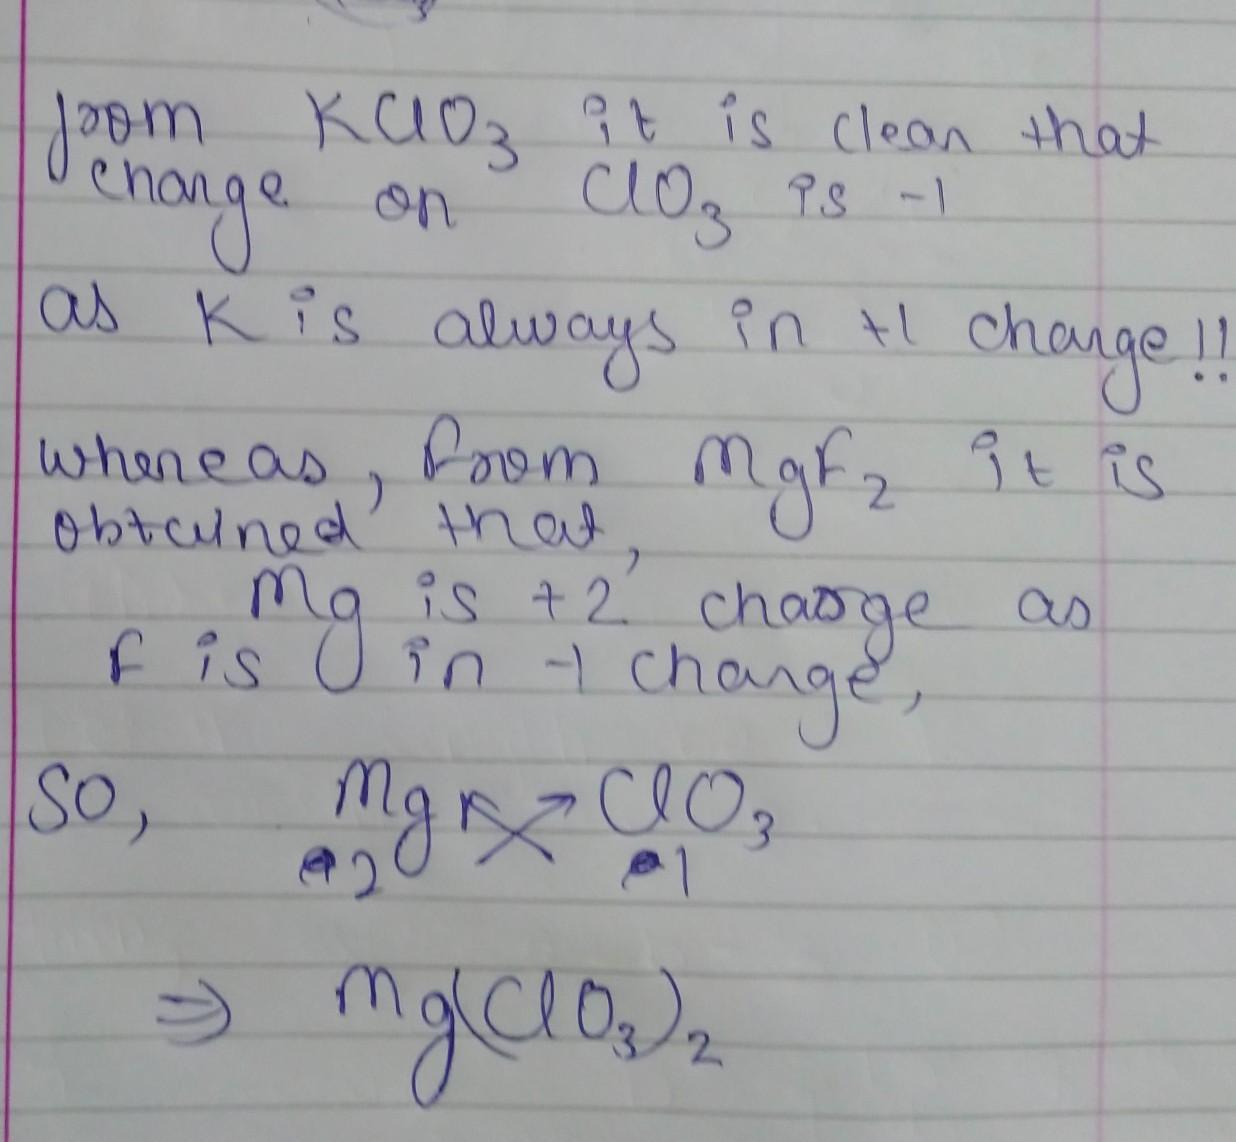 from KClO3 it is clear that
charge on ClO3 is -1
as K is always in +1 charge!!
whereas, from MgF2 it is
obtained that,
Mg is +2 charge as
F is in -1 charge,
so, Mg ClO3
+2 -1
⇒ Mg(ClO3)2